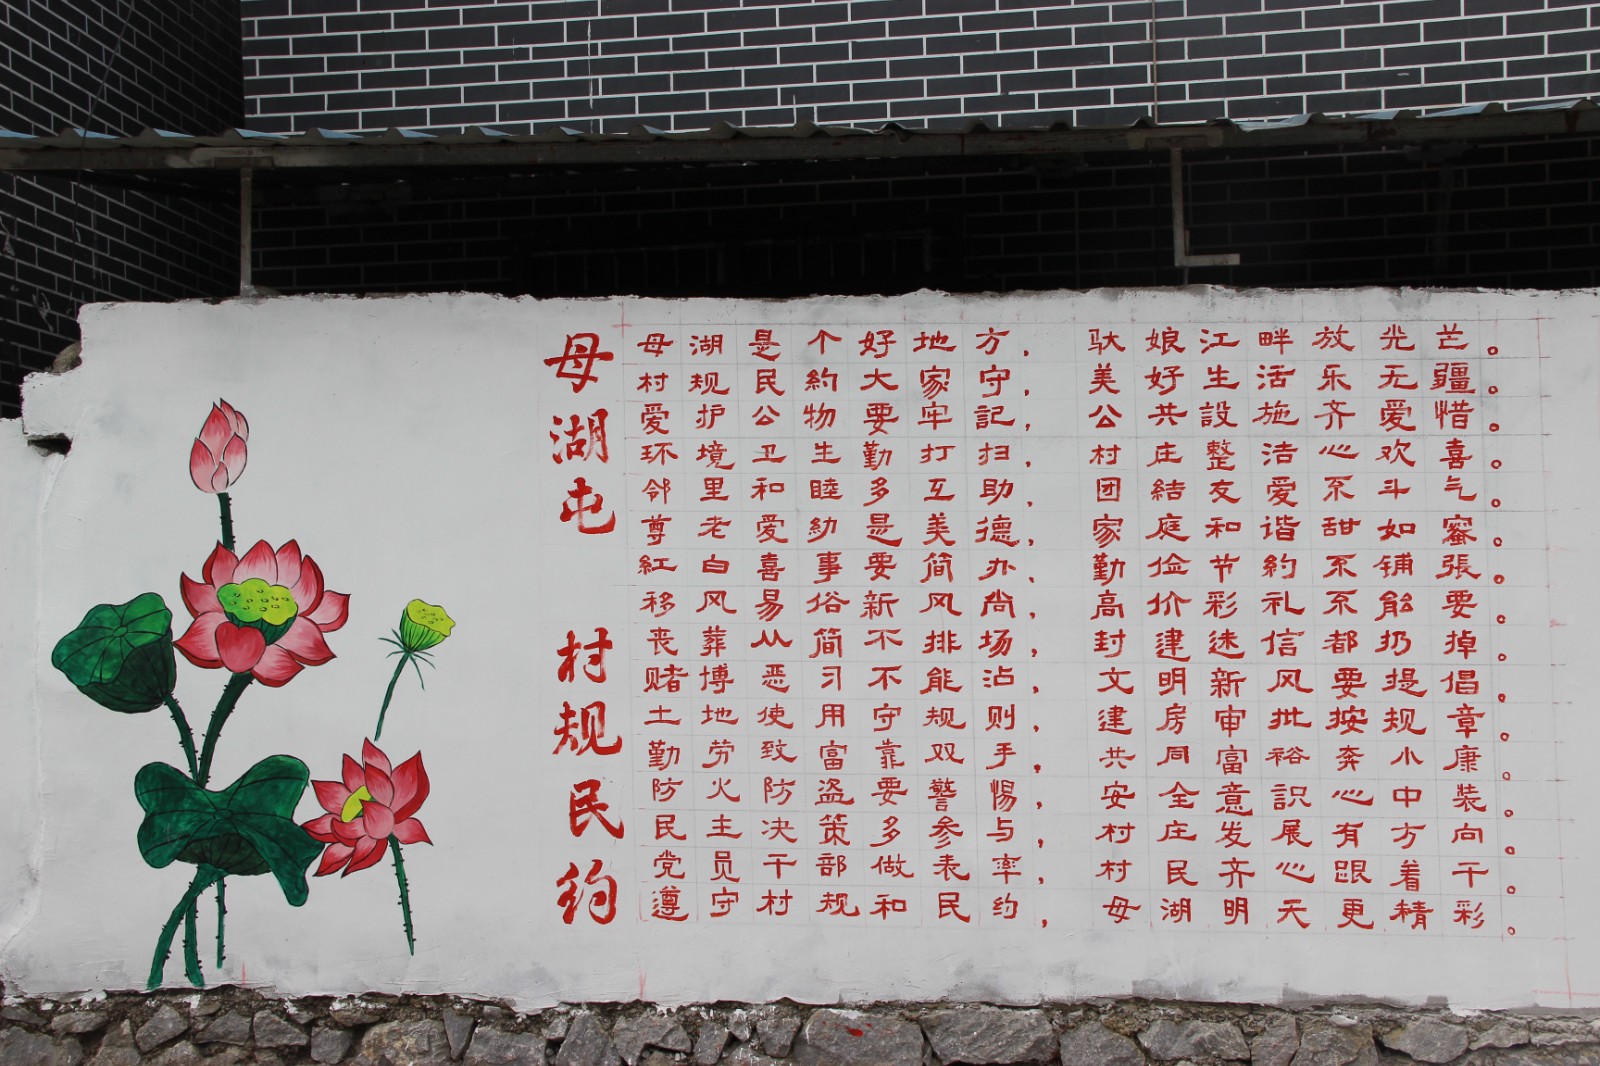 母湖屯 村规民约
母湖是个好地方，驮娘江畔放光芒。
村规民約大家守，美好生活乐无疆。
爱护公物要牢記，公共設施齐爱惜。
环境卫生勤打扫，村庄整洁心欢喜。
邻里和睦多互助，团結友爱系斗气。
尊老爱幼是美德，家庭和谐甜如蜜。
紅白喜事要简办，勤俭节約系铺張。
移风易俗新风尚，高价彩礼系能要。
丧葬从简不排场，封建迷信都扔掉。
赌博恶习不能沾，文明新风要提倡。
土地使用守规则，建房审批按规章。
勤劳致富靠双手，共同富裕奔小康。
防火防盗要警惕，安全意識心中装。
民主决策多参与，村庄发展有方向。
党员干部做表率，村民齐心跟着干。
遵守村规和民约，母湖明天更精彩。